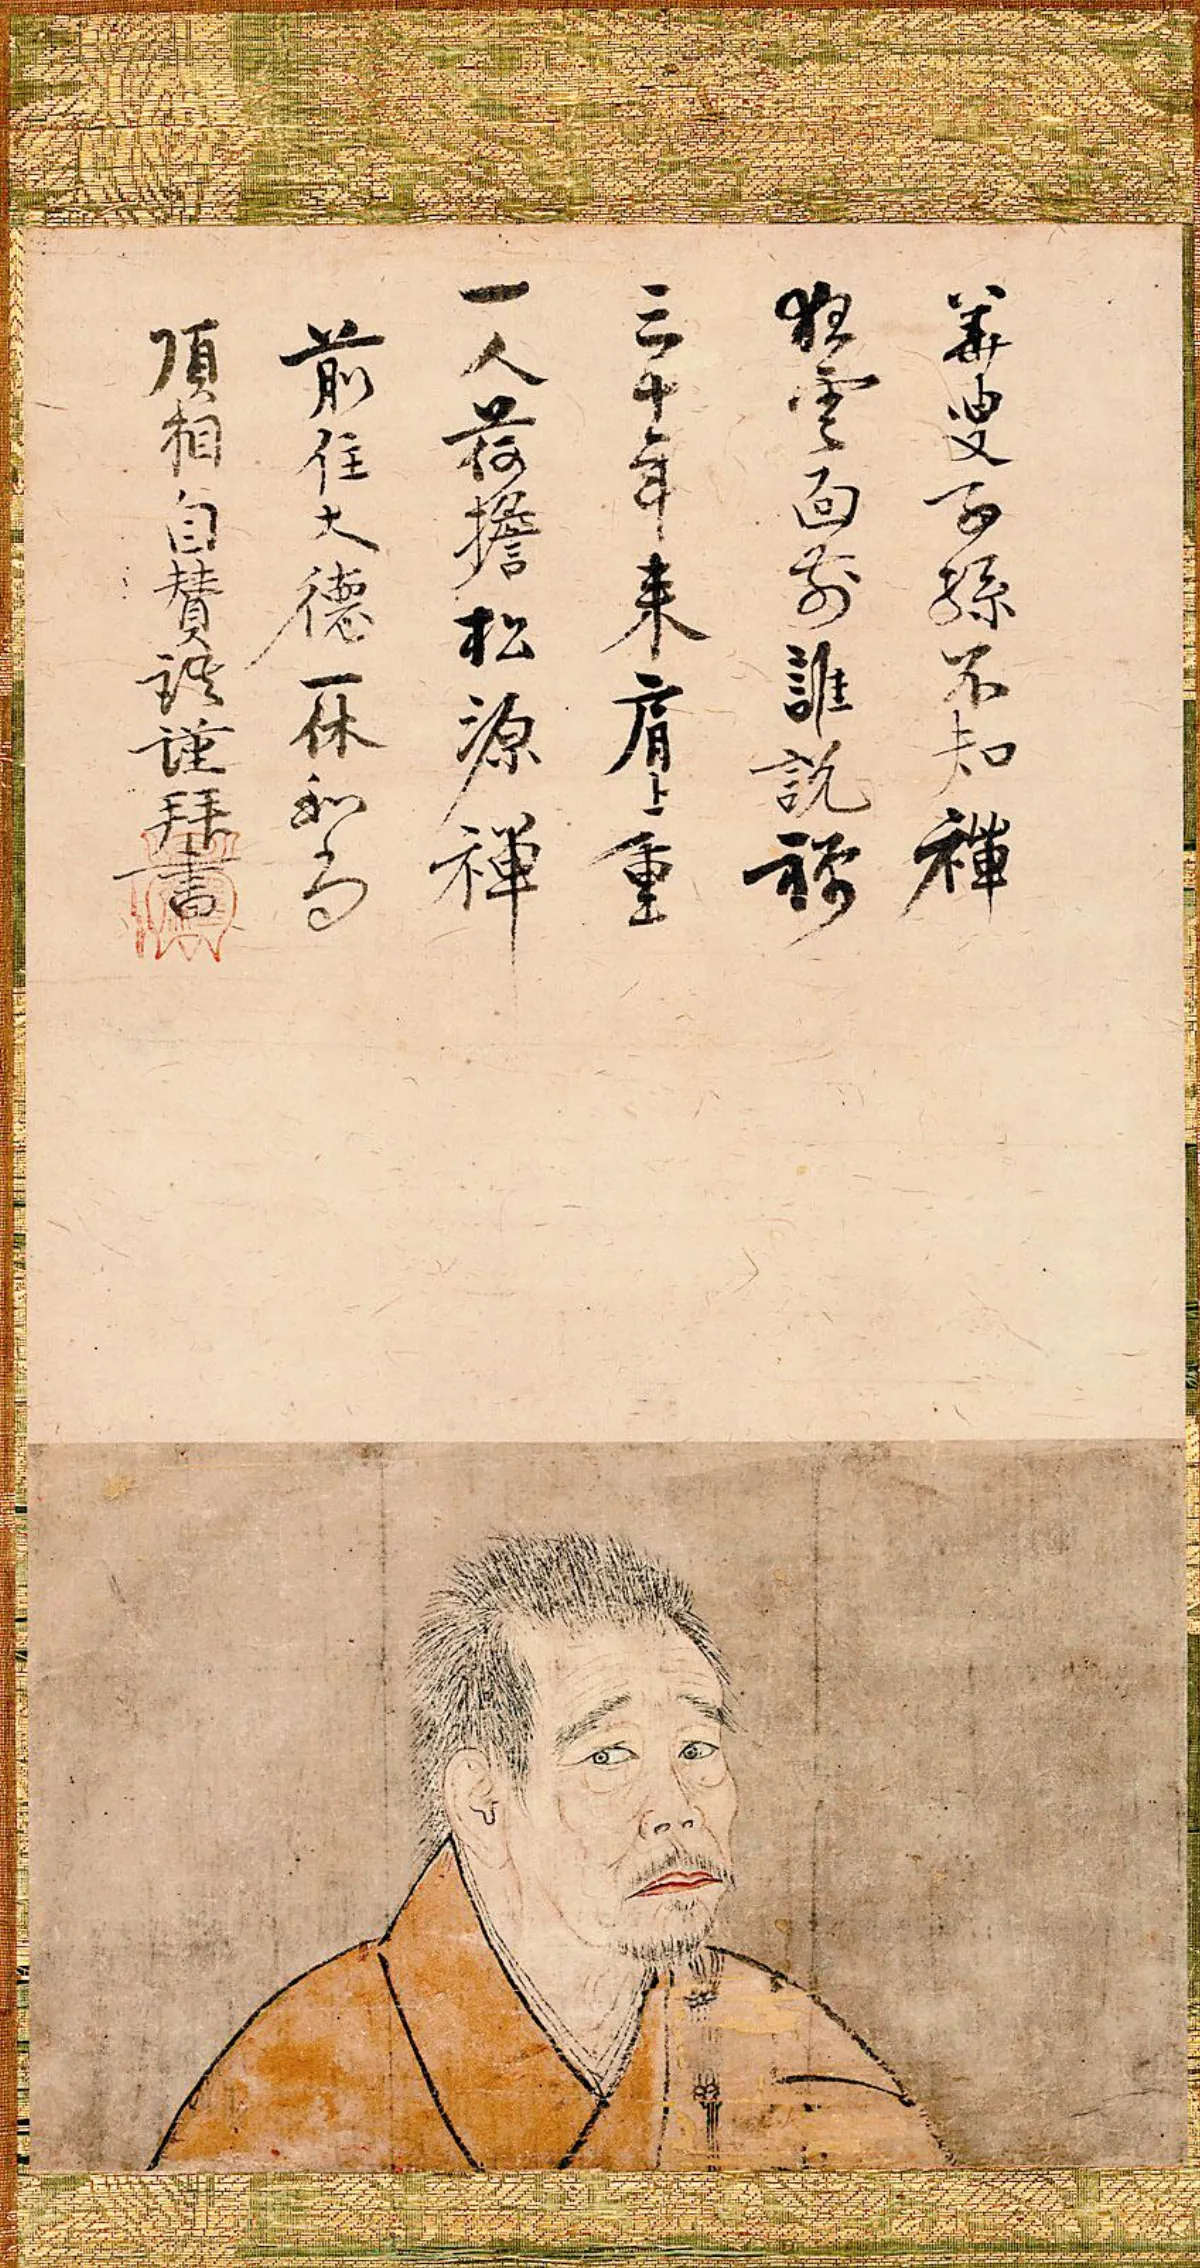 華叟子孫不知禅
狂雲面前誰説禅
三十年来肩上重
一人荷擔松源禅
前住大德一休和尚
頂相自賛 謹拜書